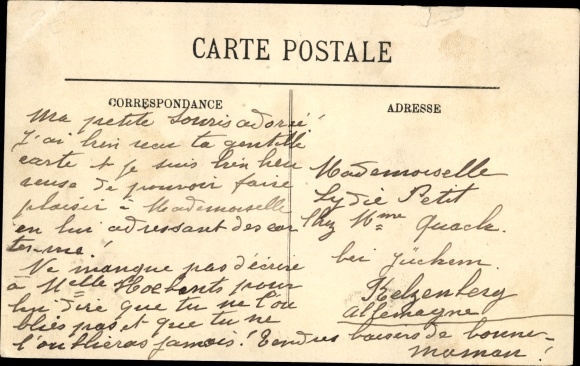 CARTE POSTALE
CORRESPONDANCE
Ma petite souris adorée!
J'ai bien recu ta gentille
carte et je suis bien heu
reuse de pouvoir faire
plaisir à Mademoiselle
en lui adressant des car
tes-vue!
Ne manque pas d'écrire
à Melle pour
lui dire que tu ne l'ou
blies pas et que tu ne
l'oublieras jamais! Tendres baisers de bonne-
maman!
ADRESSE
Mademoiselle
Lydie Petit
Chez Mme Quack
bei Jüchem.
Kelzenberg
Allemagne